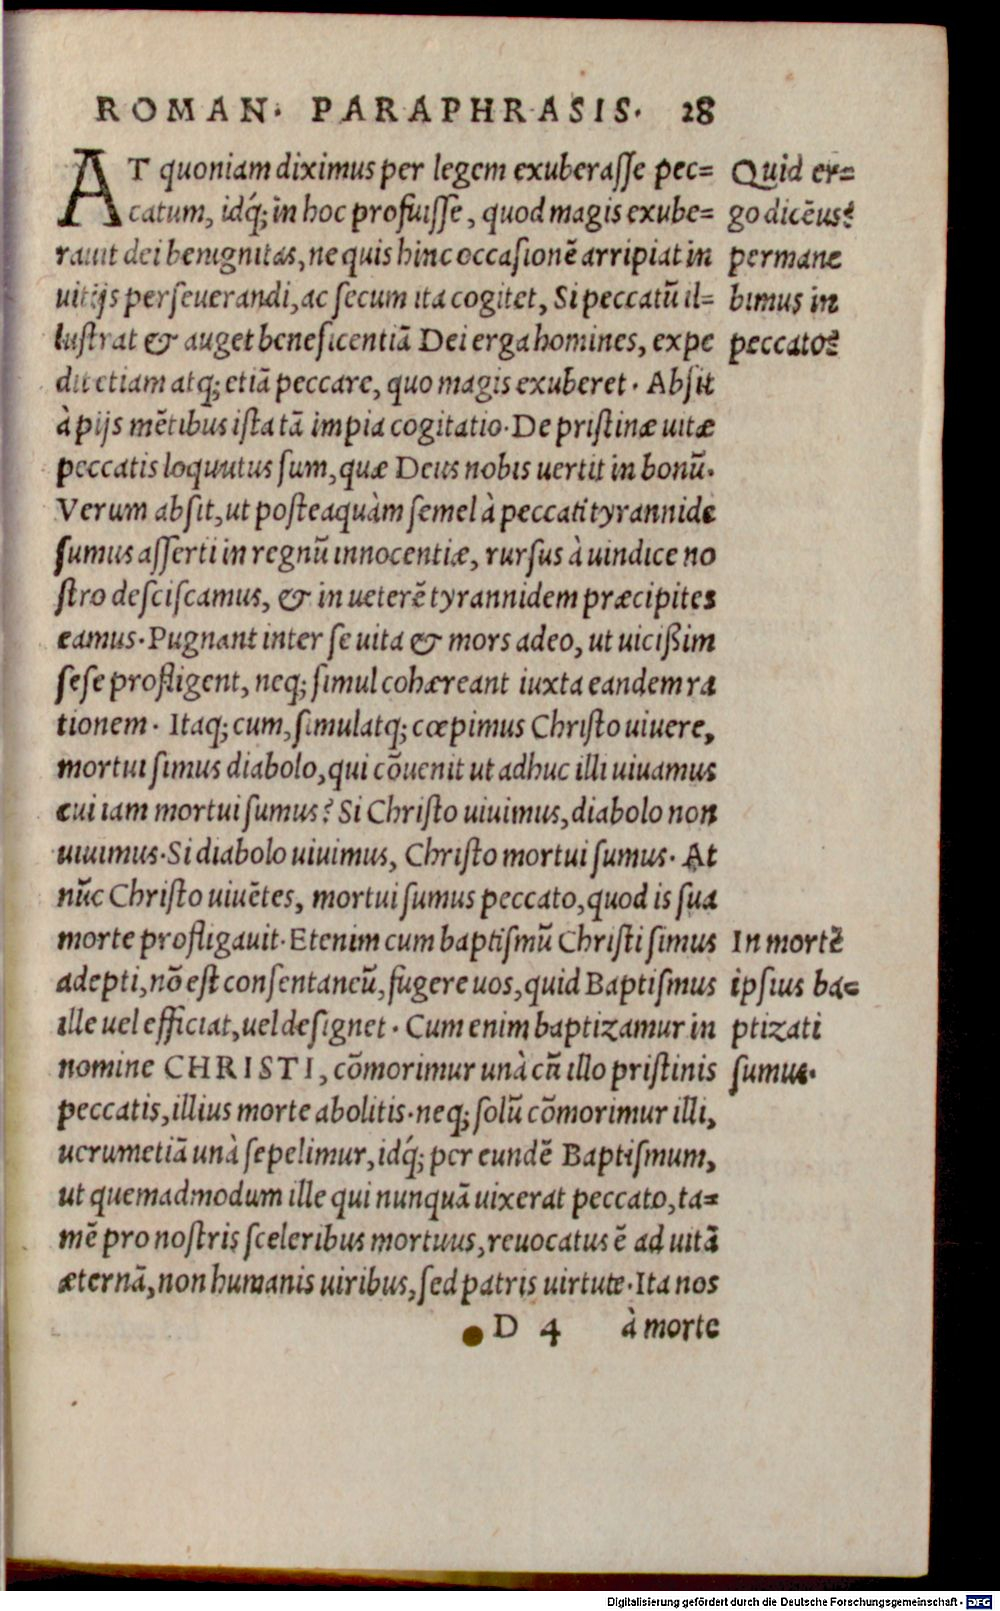 ROMAN. PARAPHRASIS. 28
AT quoniam diximus per legem exuberasse pec=
catum, idq́; in hoc profuisse, quod magis exube=
rauit dei benignitas, ne quis hinc occasionē arripiat in
uitijs perseuerandi, ac secum ita cogitet, Si peccatū il=
lustrat & auget beneficentiā Dei erga homines, expe
dit etiam atq; etiā peccare, quo magis exuberet. Absit
à pijs mētibus ista tā impia cogitatio. De pristinæ uitæ
peccatis loquutus sum, quæ Deus nobis uertit in bonū.
Verum absit, ut posteaquàm semel à peccati tyrannide
sumus asserti in regnū innocentiæ, rursus à uindice no
stro desciscamus, & in ueterē tyrannidem præcipites
eamus. Pugnant inter se uita & mors adeo, ut uicißim
sese profligent, neq; simul cohæreant iuxta eandem ra
tionem. Itaq; cum, simulatq; cœpimus Christo uiuere,
mortui simus diabolo, qui cōuenit ut adhuc illi uiuamus
cui iam mortui sumus? Si Christo uiuimus, diabolo non
uiuimus. Si diabolo uiuimus, Christo mortui sumus. At
nūc Christo uiuētes, mortui sumus peccato, quod is sua
morte profligauit. Etenim cum baptismū Christi simus
adepti, nō est consentaneū, fugere uos, quid Baptismus
ille uel efficiat, uel designet. Cum enim baptizamur in
nomine CHRISTI, cōmorimur unà cū illo pristinis
peccatis, illius morte abolitis. neq; solū cōmorimur illi,
uerumetiā unà sepelimur, idq́; per eundē Baptismum,
ut quemadmodum ille qui nunquā uixerat peccato, ta=
mē pro nostris sceleribus mortuus, reuocatus ē ad uitā
æternā, non humanis uiribus, sed patris uirtute. Ita nos
D 4 à morte
Quid er=
go dicēus?
permane
bimus in
peccato?
In mortē
ipsius ba=
ptizati
sumus.
Digitalisierung gefördert durch die Deutsche Forschungsgemeinschaft - DFG